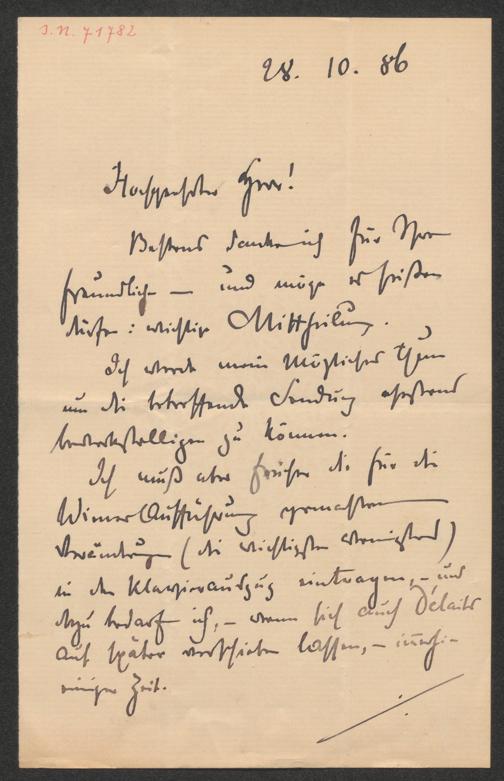 J.N. 71782
28. 10. 86
Hochgeehrter Herr!
Bestens danke ich für Ihre
freundliche — und möge es heißen
dürfen: wichtige Mittheilung.
Ich werde mein Möglichstes thun
um die betreffende Sendung ehestens
bewerkstelligen zu können.
Ich muß aber früher die für die
Wiener Aufführung gemachten
Veränderungen (die wichtigsten wenigstens)
in den Klavierauszug eintragen, – und
dazu bedarf ich, – wenn sich auch Détails
auf später verschieben lassen, – immerhin
einiger Zeit.